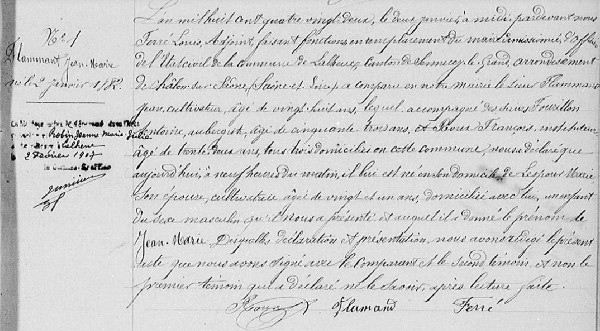 No. 1
Flammant Jean-Marie
né le 2 janvier 1882.
Robin Jeanne Marie
2 Février 1907
L'an mil huit cent quatre vingt deux, le deux janvier, à midi, pardevant nous
Ferré Louis, Adjoint faisant fonctions en remplacement du maire démissionné, d'officier
de l'Etat civil de la commune de Lalheue, Canton de Sennecey le Grand, arrondissement
de Châlon sur Saône, Saône et Loire, a comparu en notre mairie le Sieur Flammand
Jean, cultivateur, âgé de vingt huit ans, lequel, accompagné des Sieurs
Antoine, aubergiste, âgé de cinquante trois ans, et François, instituteur,
âgé de trente deux ans, tous trois domiciliés en cette Commune, nous a déclaré que
aujourd'hui, à neuf heures du matin, il lui est né en son domicile de Marie
son épouse, cultivatrice, âgée de vingt et un ans, domiciliée avec lui, un enfant
du sexe masculin qu'il nous a présenté et auquel il a donné le prénom de
Jean-Marie. Desquelles déclaration et présentation, nous avons rédigé le présent
acte que nous avons signé avec le comparant et le second témoin et non le
premier témoin qui a déclaré ne le savoir, après lecture faite.
Flamand Ferré